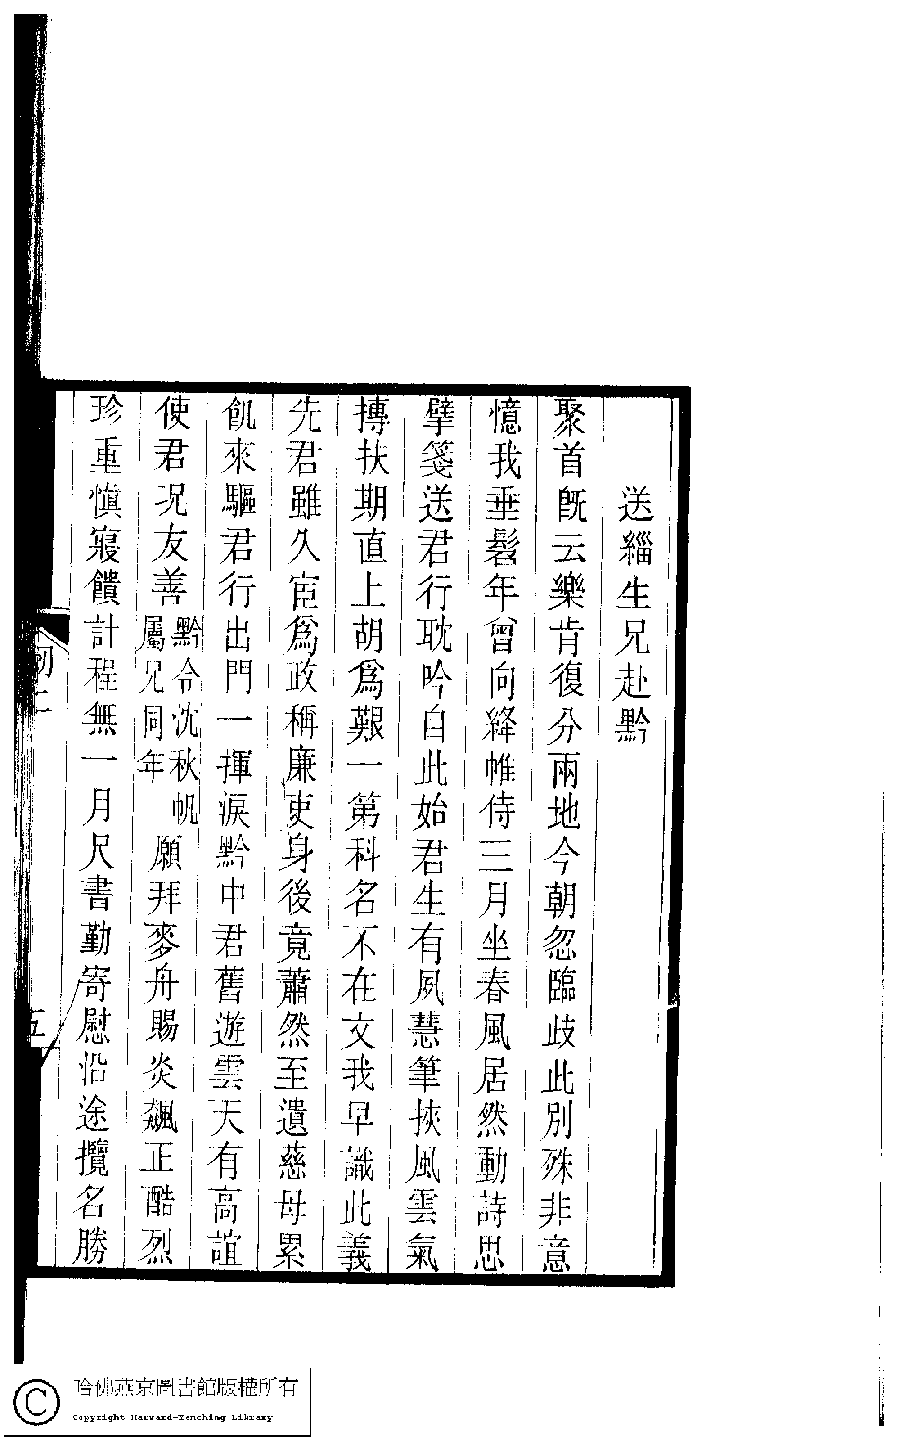 送緇生兄赴黔
聚首旣云樂肯復分兩地今朝忽臨歧此別殊非意
憶我垂髫年曾向絳帷侍三月坐春風居然動詩思
擘箋送君行耽吟自此始君生有夙慧筆挾風雲氣
摶扶期直上胡爲艱一第科名不在文我早識此義
先君雖久宦爲政稱廉吏身後竟蕭然至遺慈母累
飢來驅君行出門一揮淚黔中君舊遊雲天有高誼
使君況友善黔令沈秋帆屬兄同年願拜麥舟賜炎飆正酷烈
珍重愼寢饋計程無一月尺書勤寄慰沿途攬名勝
五
哈佛燕京圖書館版權所有
Copyright Harvard-Yenching Library